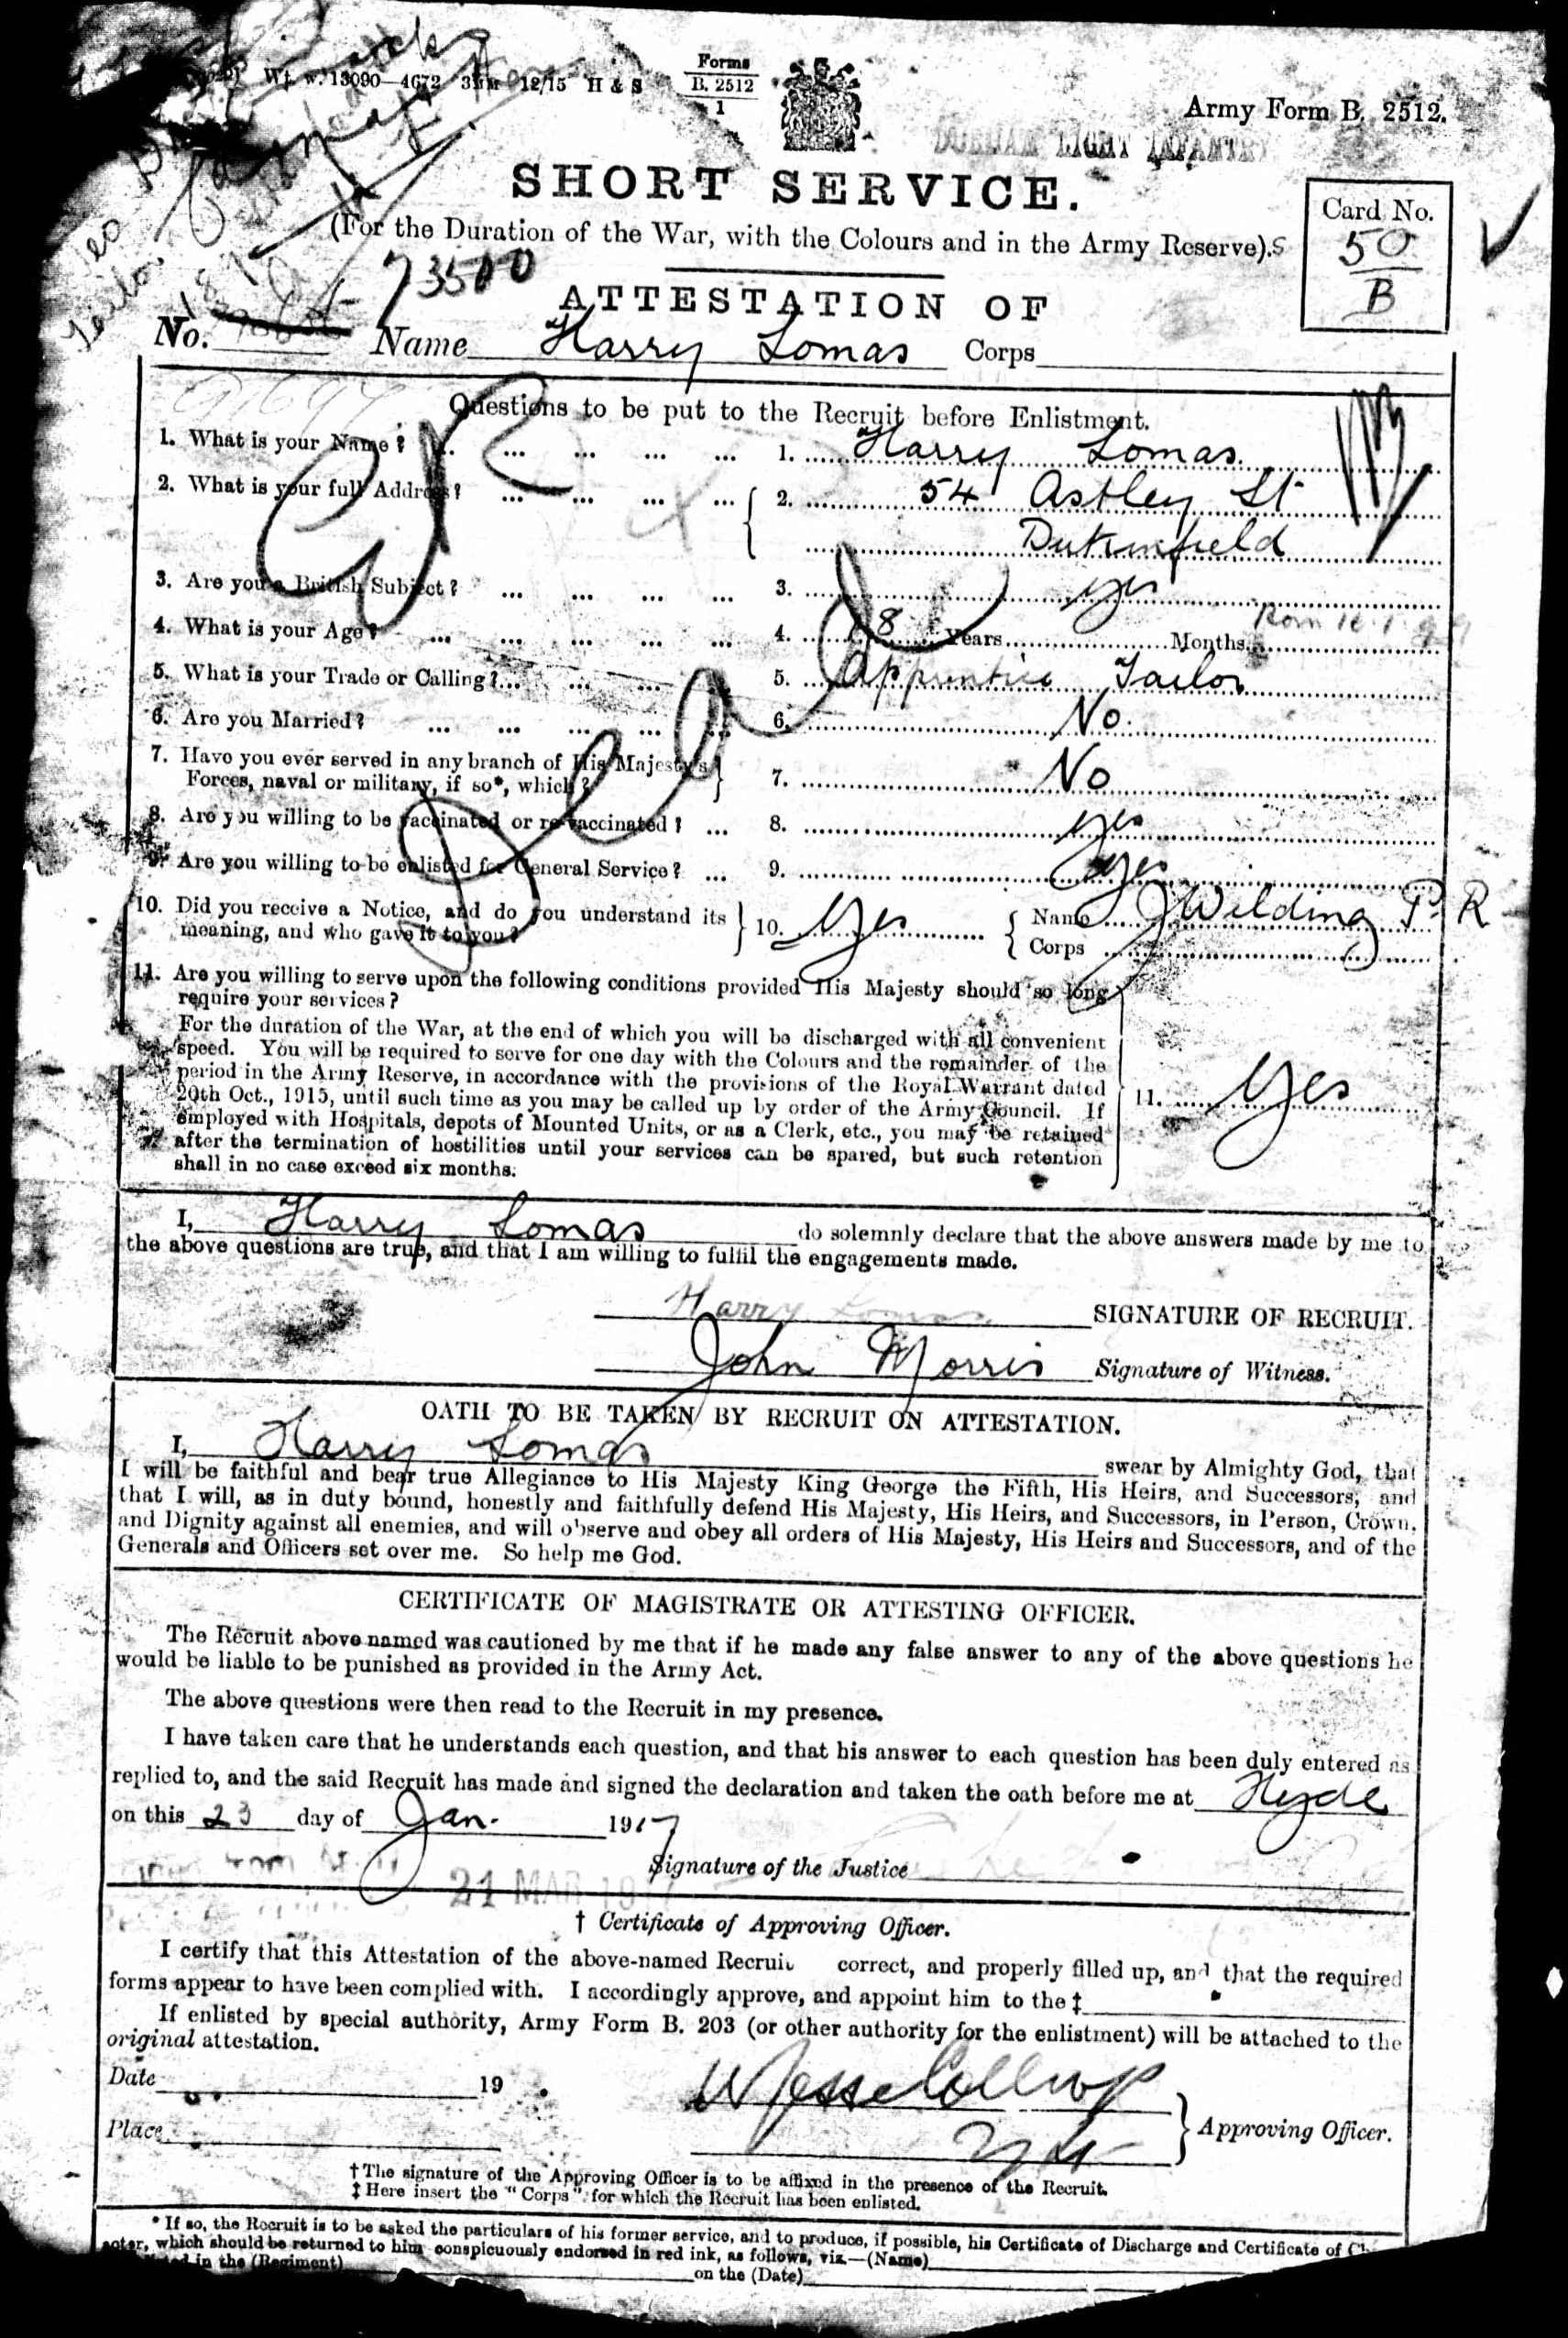 Wt. w. 13090—4672 12/15 H & S
Forms
B. 2512
1
Army Form B. 2512.
DURHAM LIGHT INFANTRY
SHORT SERVICE.
(For the Duration of the War, with the Colours and in the Army Reserve).
Card No.
50
B
73500
ATTESTATION OF
No. Name Harry Lomas Corps
Questions to be put to the Recruit before Enlistment.
1. What is your Name? ... ... ... ... 1. Harry Lomas
2. What is your full Address? ... ... ... ... 2. 54 Astley St
Dukinfield
3. Are you a British Subject? ... ... ... ... 3. yes
4. What is your Age? ... ... ... ... ... 4. 18 Years Months
5. What is your Trade or Calling? ... ... ... 5. Apprentice Tailor
6. Are you Married? ... ... ... ... ... 6. No.
7. Have you ever served in any branch of His Majesty's
Forces, naval or military, if so*, which? 7. No
8. Are you willing to be vaccinated or re-vaccinated? ... 8. yes
9. Are you willing to be enlisted for General Service? ... 9. yes
10. Did you receive a Notice, and do you understand its
meaning, and who gave it to you? 10. yes Name J Wilding P. R
Corps
11. Are you willing to serve upon the following conditions provided His Majesty should so long
require your services?
For the duration of the War, at the end of which you will be discharged with all convenient
speed. You will be required to serve for one day with the Colours and the remainder of the
period in the Army Reserve, in accordance with the provisions of the Royal Warrant dated
20th Oct., 1915, until such time as you may be called up by order of the Army Council. If
employed with Hospitals, depots of Mounted Units, or as a Clerk, etc., you may be retained
after the termination of hostilities until your services can be spared, but such retention
shall in no case exceed six months.
11. Yes
I, Harry Lomas do solemnly declare that the above answers made by me to
the above questions are true, and that I am willing to fulfil the engagements made.
Harry Lomas SIGNATURE OF RECRUIT.
John Morris Signature of Witness.
OATH TO BE TAKEN BY RECRUIT ON ATTESTATION.
I, Harry Lomas swear by Almighty God, that
I will be faithful and bear true Allegiance to His Majesty King George the Fifth, His Heirs, and Successors, and
that I will, as in duty bound, honestly and faithfully defend His Majesty, His Heirs, and Successors, in Person, Crown,
and Dignity against all enemies, and will observe and obey all orders of His Majesty, His Heirs and Successors, and of the
Generals and Officers set over me. So help me God.
CERTIFICATE OF MAGISTRATE OR ATTESTING OFFICER.
The Recruit above named was cautioned by me that if he made any false answer to any of the above questions he
would be liable to be punished as provided in the Army Act.
The above questions were then read to the Recruit in my presence.
I have taken care that he understands each question, and that his answer to each question has been duly entered as
replied to, and the said Recruit has made and signed the declaration and taken the oath before me at Hyde
on this 23 day of Jan. 1917
Signature of the Justice
21 MAR 1917
† Certificate of Approving Officer.
I certify that this Attestation of the above-named Recruit correct, and properly filled up, and that the required
forms appear to have been complied with. I accordingly approve, and appoint him to the ‡
If enlisted by special authority, Army Form B. 203 (or other authority for the enlistment) will be attached to the
original attestation.
Date 19
Place
Approving Officer.
† The signature of the Approving Officer is to be affixed in the presence of the Recruit.
‡ Here insert the "Corps" for which the Recruit has been enlisted.
* If so, the Recruit is to be asked the particulars of his former service, and to produce, if possible, his Certificate of Discharge and Certificate of
which should be returned to him conspicuously endorsed in red ink, as follows, viz.—(Name)
in the (Regiment) on the (Date)